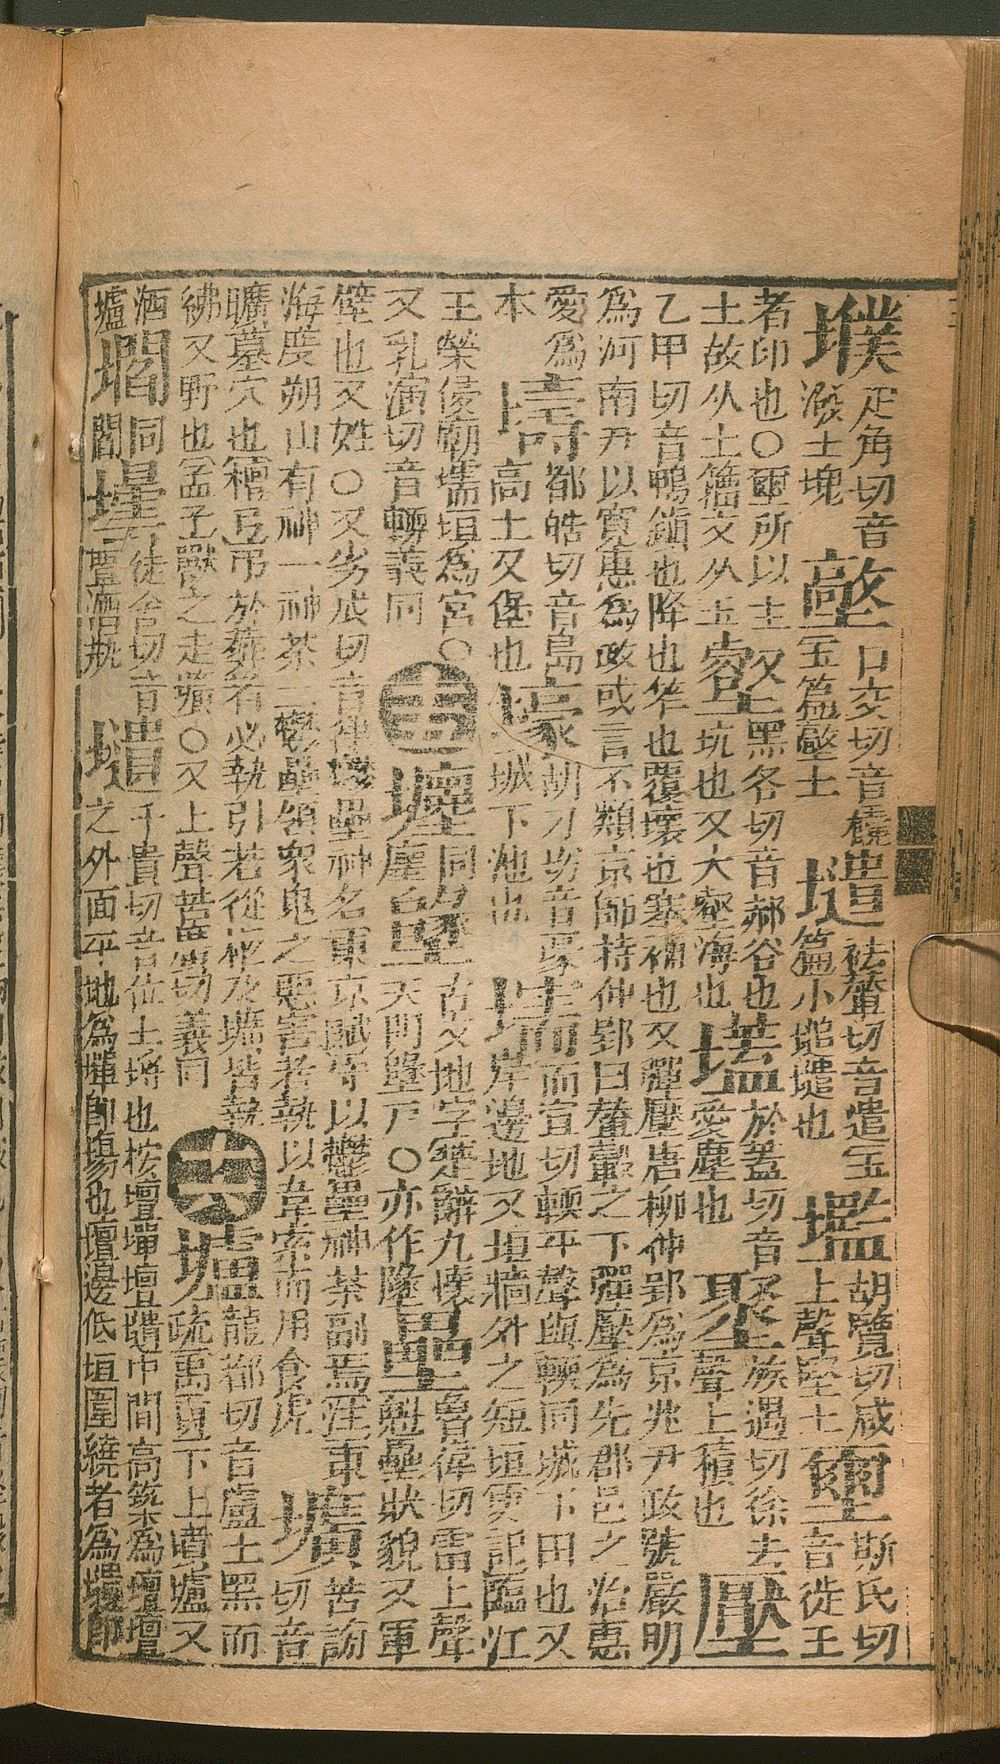 墣 疋角切音
潑土塊 墽 口交切音磽
玉篇墽土 𡑞 祛輦切音遣玉
篇小塊也 壏 胡覽切咸
上聲堅土 壐 斯氏切
音徙王
者印也○璽所以主
土故从土籀文从玉 壑 黑各切音郝谷也
坑也又大壑海也 壒 於蓋切音
愛塵也 族遇切徐去
聲上積也 壓
乙甲切音鴨鎮也降也笮也覆壞也塞補也又彈壓唐柳仲郢為京兆尹政號嚴明
為河南尹以寬惠為政或言不類京師持仲郢曰輦轂之下彈壓為先郡邑之治惠
愛為
本 壔 都皓切音島
高土又堡也 壕 胡刀切音豪
城下池也 壖 而宣切輭平聲與輭同城下田也又
岸邊地又垣牆外之短垣史記臨江
王榮侵廟壖垣為宮○
又乳演切音輭義同 壥 同
廛 墬 古文地字楚辭九懷
天門墬戶○亦作隆 壘 魯偉切雷上聲
魁壘狀貌又軍
壁也又姓○又劣戍切音律鬱壘神名東京賦守以鬱壘神荼副焉
海度朔山有神一神荼二鬱壘領衆鬼之惡害者執以葦索而用食虎 壙 苦謗
切音
曠墓穴也禮記弔於葬者必執引若從柩及壙皆執
紼又野也孟子獸之走壙○又上聲苦晃切義同 壚 龍都切音盧土黑而
疏禹貢下土墳壚又
酒
壚 壛 同
閻 壜 徒含切音
曇酒瓶 壝 于貴切音位土埓也按壇墠壇壝中間高築為壇壇
之外面平地為墠即場也壇邊低垣圍繞者為壝即